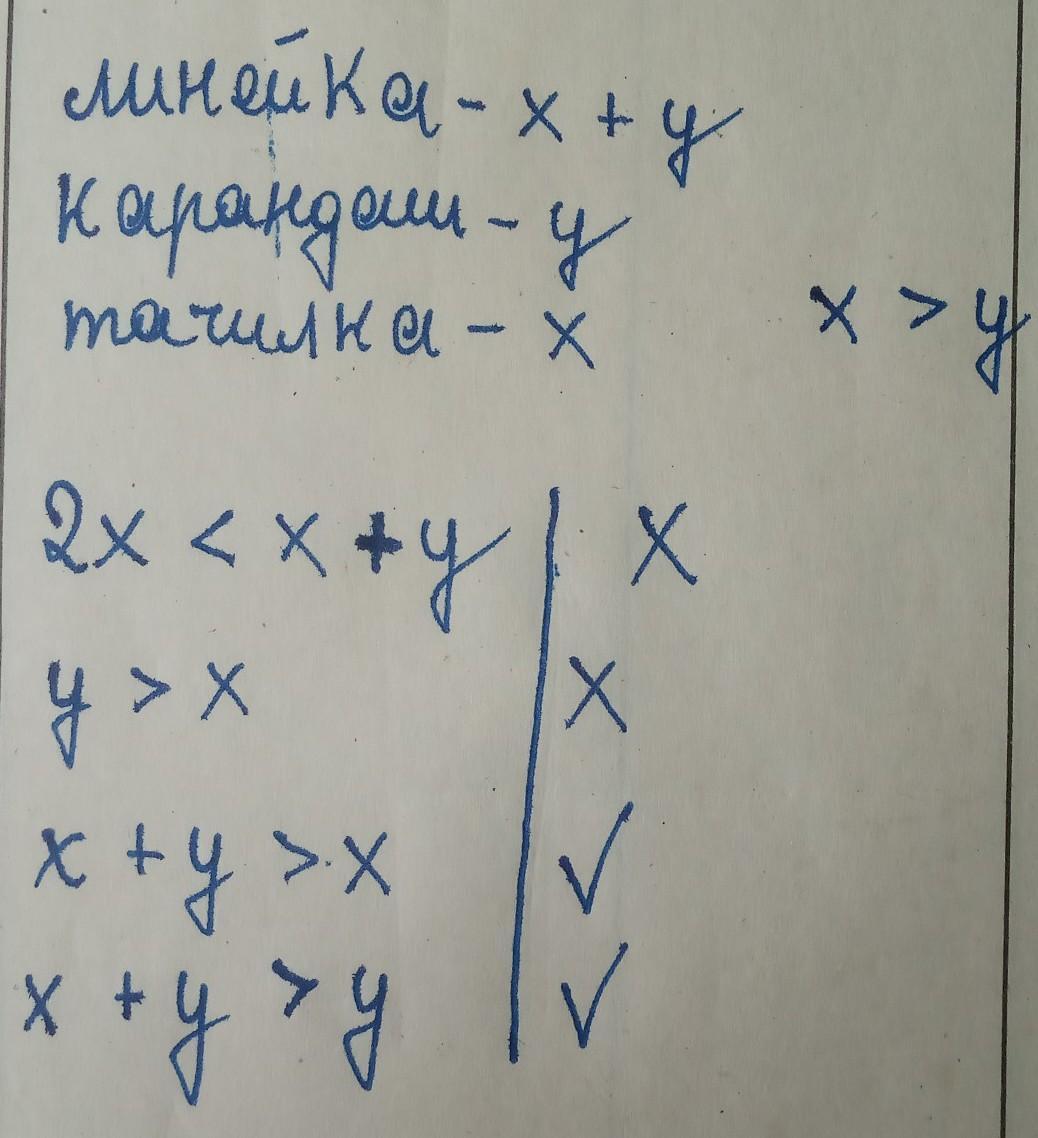 линейка - x + y
карандаш - y
тачилка - x
x > y
2x < x + y | X
y > x | X
x + y > x | ✓
x + y > y | ✓